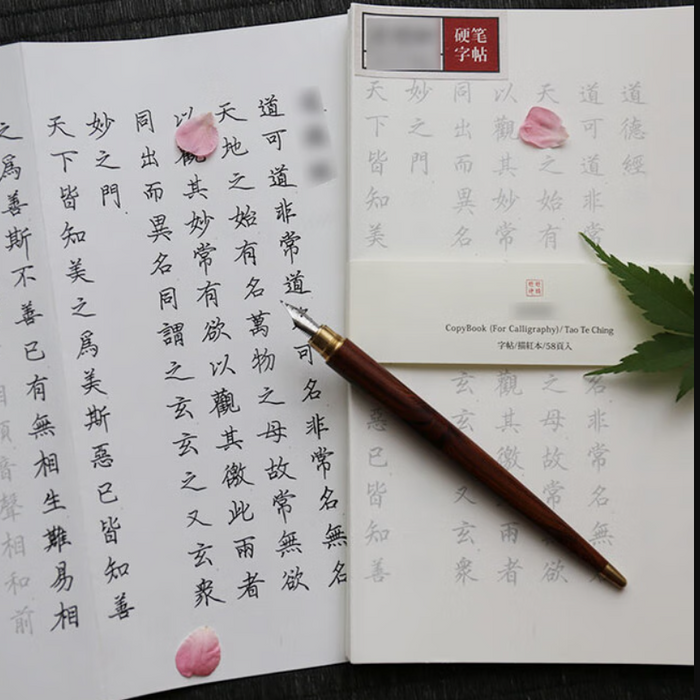 道可道非常道可名非常名無名
天地之始有名萬物之母故常無欲
以觀其妙常有欲以觀其徼此兩者
同出而異名同謂之玄玄之又玄衆
妙之門
天下皆知美之爲美斯惡已皆知善
之爲善斯不善已有無相生難易相
傾音聲相和前
硬笔
字帖
道德經
道可道非常
天之始有
以觀其妙常
同出而異名
妙之門
天下皆知美
CopyBook (For Calligraphy)/ Tao Te Ching
字帖/描紅本/58頁入
名非常名無
之母故常無欲
觀其徼此兩者
玄又玄衆
惡已皆知善